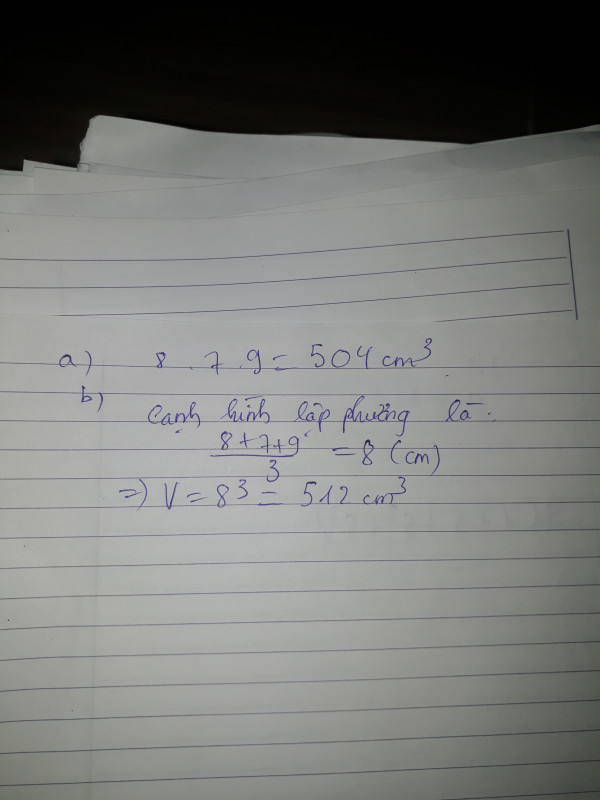 a) 8 . 7 . 9 = 504 cm³
b)
Cạnh hình lập phương là:
(8+7+9)/3 = 8 (cm)
=) V = 8³ = 512 cm³